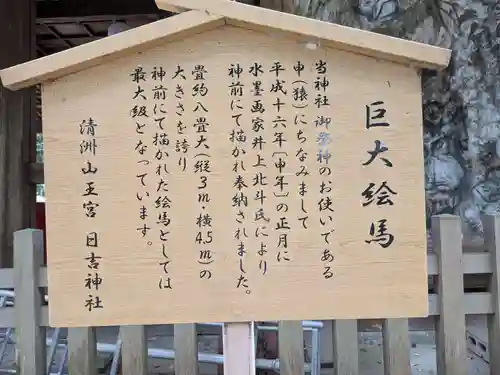 巨大絵馬
当神社 御祭神のお使いである
申(猿)にちなみまして
平成十六年〔申年〕の正月に
水墨画家井上北斗氏により
神前にて描かれ奉納されました。
畳約八畳大(縦3m・横4.5m)の
大きさを誇り
神前にて描かれた絵馬としては
最大級となっています。
清洲山王宮 日吉神社